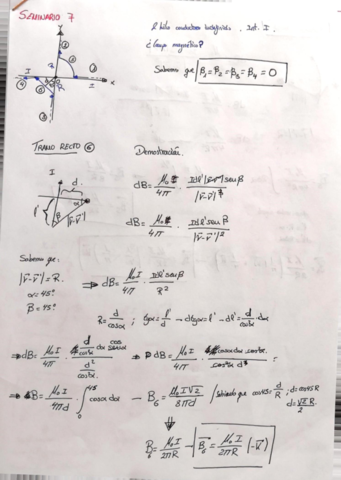 SEMINARIO 7
hilo conductor indefinido. Int. I.
¿Campo magnético?
Sabemos que B₁=B₂=B₃=B₄=0
y
x
I
R
TRAMO RECTO ⑥
Demostración.
I
d
l'
α
β
|r̄-r̄'|
dB = μ₀/4π · Idl'|r̄-r̄'|senβ / |r̄-r̄'|³
dB = μ₀/4π · Idl'senβ / |r̄-r̄'|²
Sabemos que:
|r̄-r̄'| = R.
α=45º
β=45º
⇒ dB = μ₀I/4π · dl'senβ / R²
R = d/cosα ; tgα = l'/d → dtgα = l' → dl' = d/cos²α dα
⇒ dB = μ₀I/4π · (d/cos²α dα cosα) / (d²/cos²α) ⇒ dB = μ₀I/4π · d cosα dα cos²α / cos²α d² =
⇒ B = μ₀I/4πd · ∫₀⁴⁵ cosα dα → B₆ = μ₀I√2/8πd / sabiendo que cos45 = d/R ; d = cos45R
d = √2/2 R.
⇓
B₆ = μ₀I/2πR → B̄₆ = μ₀I/2πR (-k̄)